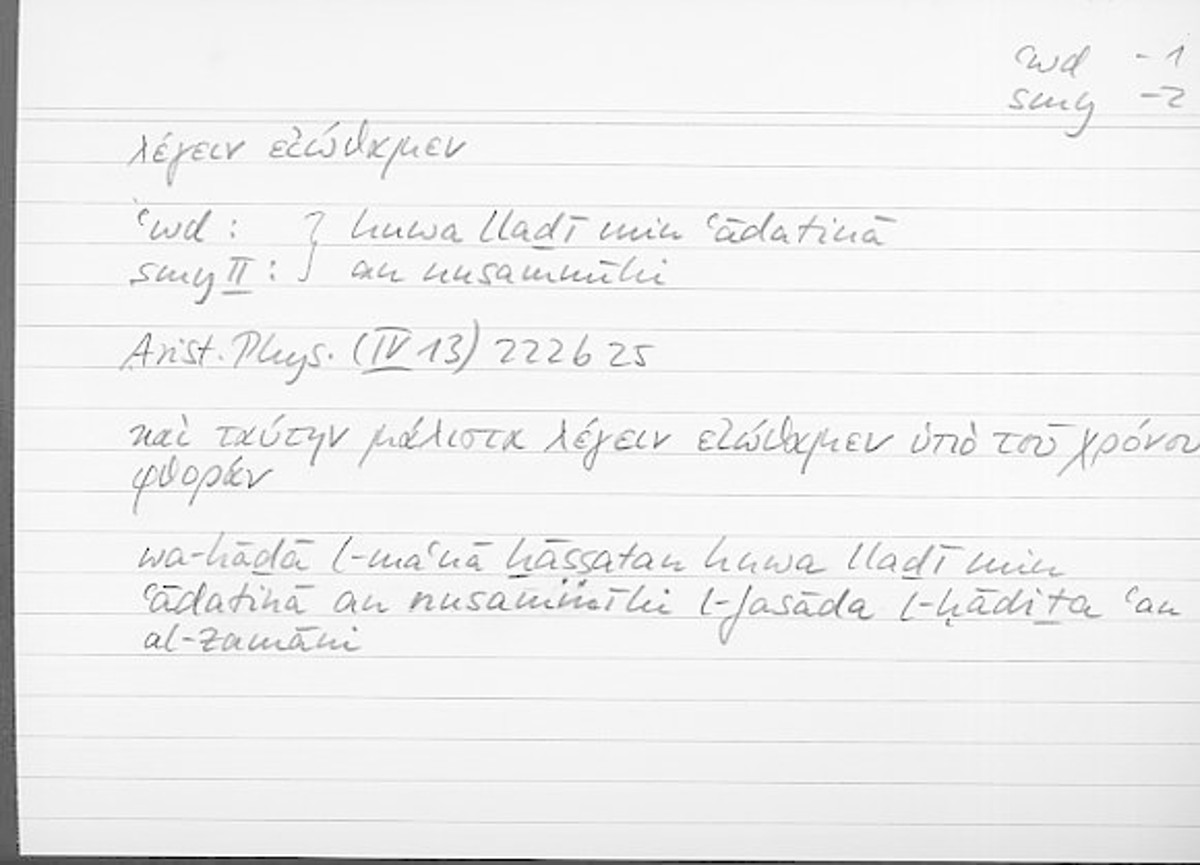 ʿwd - 1
smy - 2
λέγειν εἰώθαμεν
ʿwd : } huwa llaḏī min ʿādatinā
smy II : } an nusammīhi
Arist. Phys. (IV 13) 222b25
καὶ ταύτην μάλιστα λέγειν εἰώθαμεν ὑπὸ τοῦ χρόνου
φθοράν
wa-hāḏā l-maʿnā ḫāṣṣatan huwa llaḏī min
ʿādatinā an nusammīhi l-fasāda l-ḥādiṯa ʿan
al-zamāni